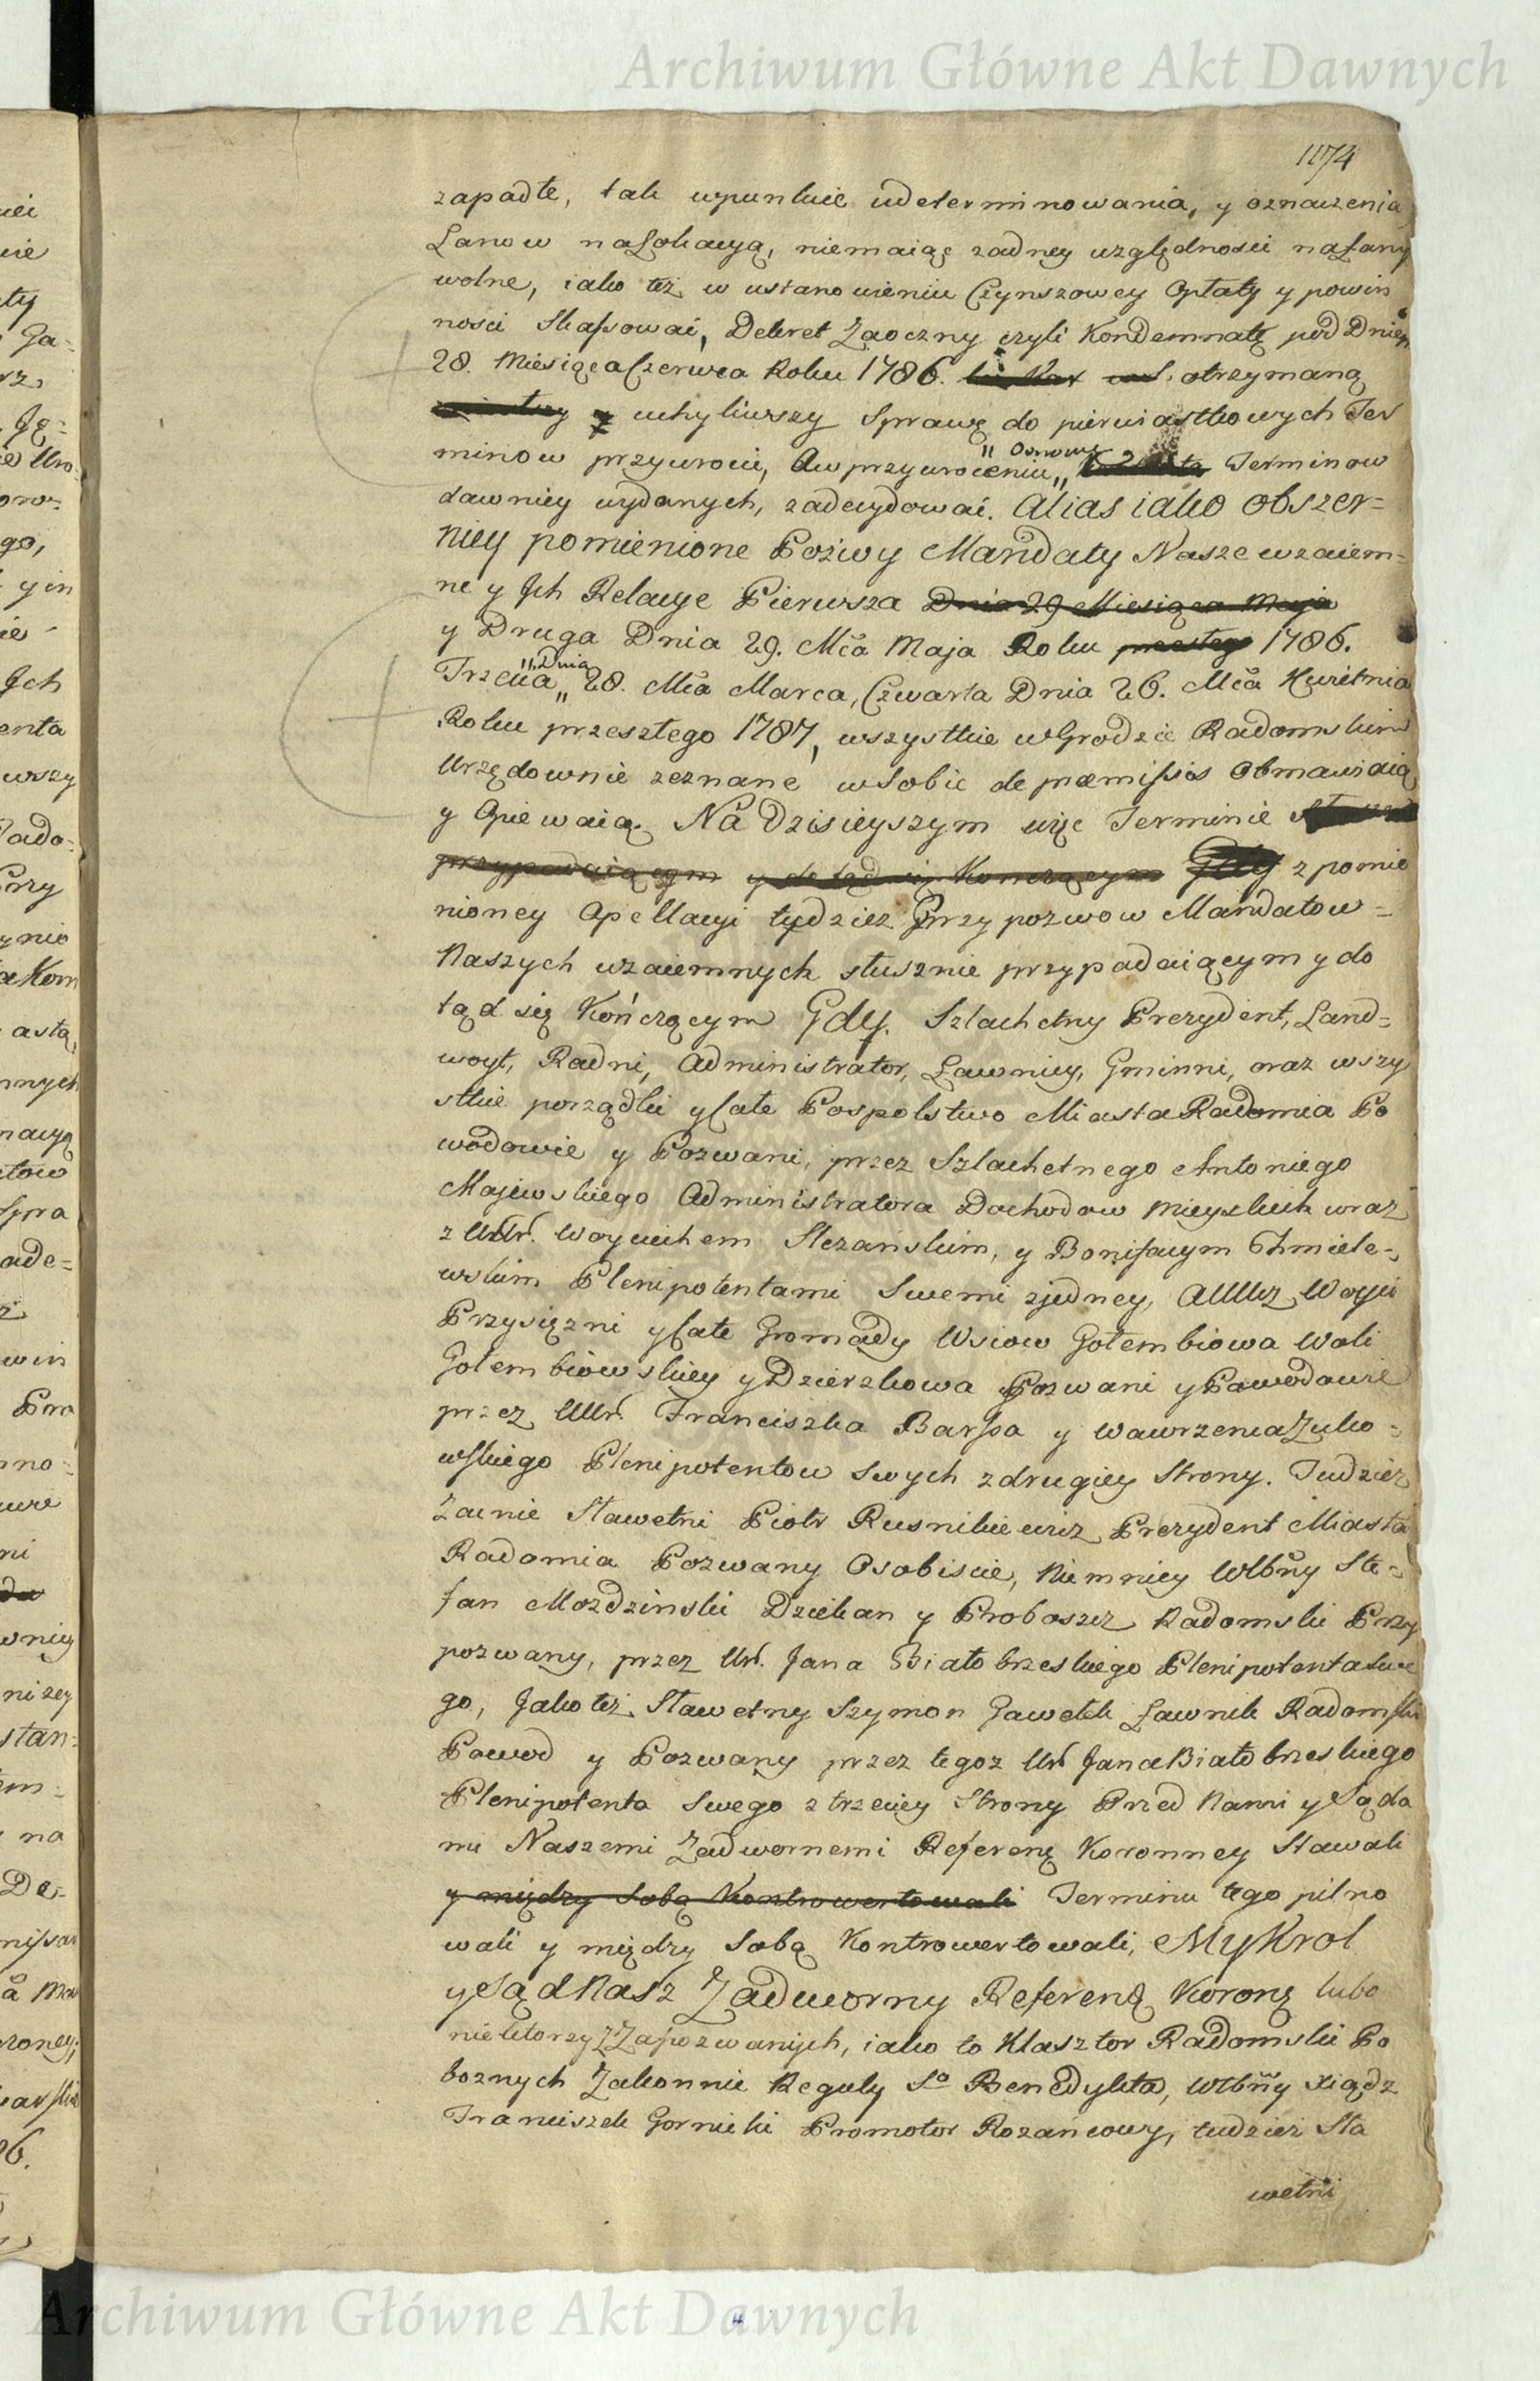 Archiwum Główne Akt Dawnych
1174
zapadłe, tak wpunkcie udeterminowania, y oznaczenia
Łanow naLokacyą, niemaiąc zadney względnosci naŁany
wolne, iako też w ustanowieniu Czynszowey Opłaty y powin
nosci skassować, Dekret Zaoczny czyli Kondemnatę pod Dniem
28. Miesiąca Czerwca Roku 1786. otrzymaną
uchyliwszy Sprawę do pierwiastkowych Ter
minow przywrocić, Aw przywroceniu „ Terminow
dawniey wydanych, zadecydować. Alias iako obszer=
niey pomienione Pozwy Mandaty Nasze wzaiem=
ne y Jch Relacye Pierwsza Dnia 29 Miesiąca Maja
y Druga Dnia 29. Mca Maja Roku przeszłego 1786.
Trzecia „Dnia 28. Mca Marca, Czwarta Dnia 26. Mca Kwietnia
Roku przeszłego 1787, wszystkie wGrodzie Radomskim
Urzędownie zeznane wSobie de præmissis Obmawiaią
y Opiewaią. Na Dzisieyszym więc Terminie
przypadaiącym y dotąd się Konczącym Gdy z pomie
nioney Apellacyi tydziez Przypozwow Mandatow=
Naszych wzaiemnych słusznie przypadaiącym y do
tąd się Kończącym Gdy. Szlachetny Prezydent, Land=
woyt, Radni, Administrator, Ławnicy, Gminni, oraz wszy
stkie porządki yCałe Pospolstwo Miasta Radomia Po
wodowie y Pozwani, przez Szlachetnego Antoniego
Majewskiego Administratora Dochodow Mieyskich wraz
z UUr. Woyciechem Slezańskim, y Bonifacym Chmiele=
wskim Plenipotentami Swemi zjedney, AUUcz. Woyci
Przysięzni yCałe Gromady Wsiow Gołembiowa Woli
Gołembiowskiey y Dzierzkowa Pozwani y Powodowie
przez UUr. Franciszka Barssa y Wawrzenca Zulko=
wskiego Plenipotentow Swych zdrugiey Strony. Tudziez
Zacnie Sławetni Piotr Rusnikiewicz Prezydent Miasta
Radomia Pozwany Osobiscie, Niemniey Wlbny Ste=
fan Mozdzinski Dziekan y Proboszcz Radomski Przy
pozwany, przez Ur. Jana Białobrzeskiego Plenipotenta Swe
go, Jako też Sławetny Szymon Gawełek Ławnik Radomski
Powod y Pozwany przez tegoz Ur Jana Białobrzeskiego
Plenipotenta Swego z trzeciey Strony Przed Nami y Sąda
mi Naszemi Zadwornemi Referen Koronney Stawali
y między Sobą Kontrowertowali Terminu tego pilno
wali y między Sobą Kontrowertowali, My Krol
y Sąd Nasz Zadworny Referen Koron lubo
niektorzy zZapozwanych, iako to Klasztor Radomski Po
boznych Zakonnic Reguły So Benedykta, Wlbny Xiądz
Franciszek Gornicki Promotor Rozańcowy, tudziez Sła
wetni
Archiwum Główne Akt Dawnych